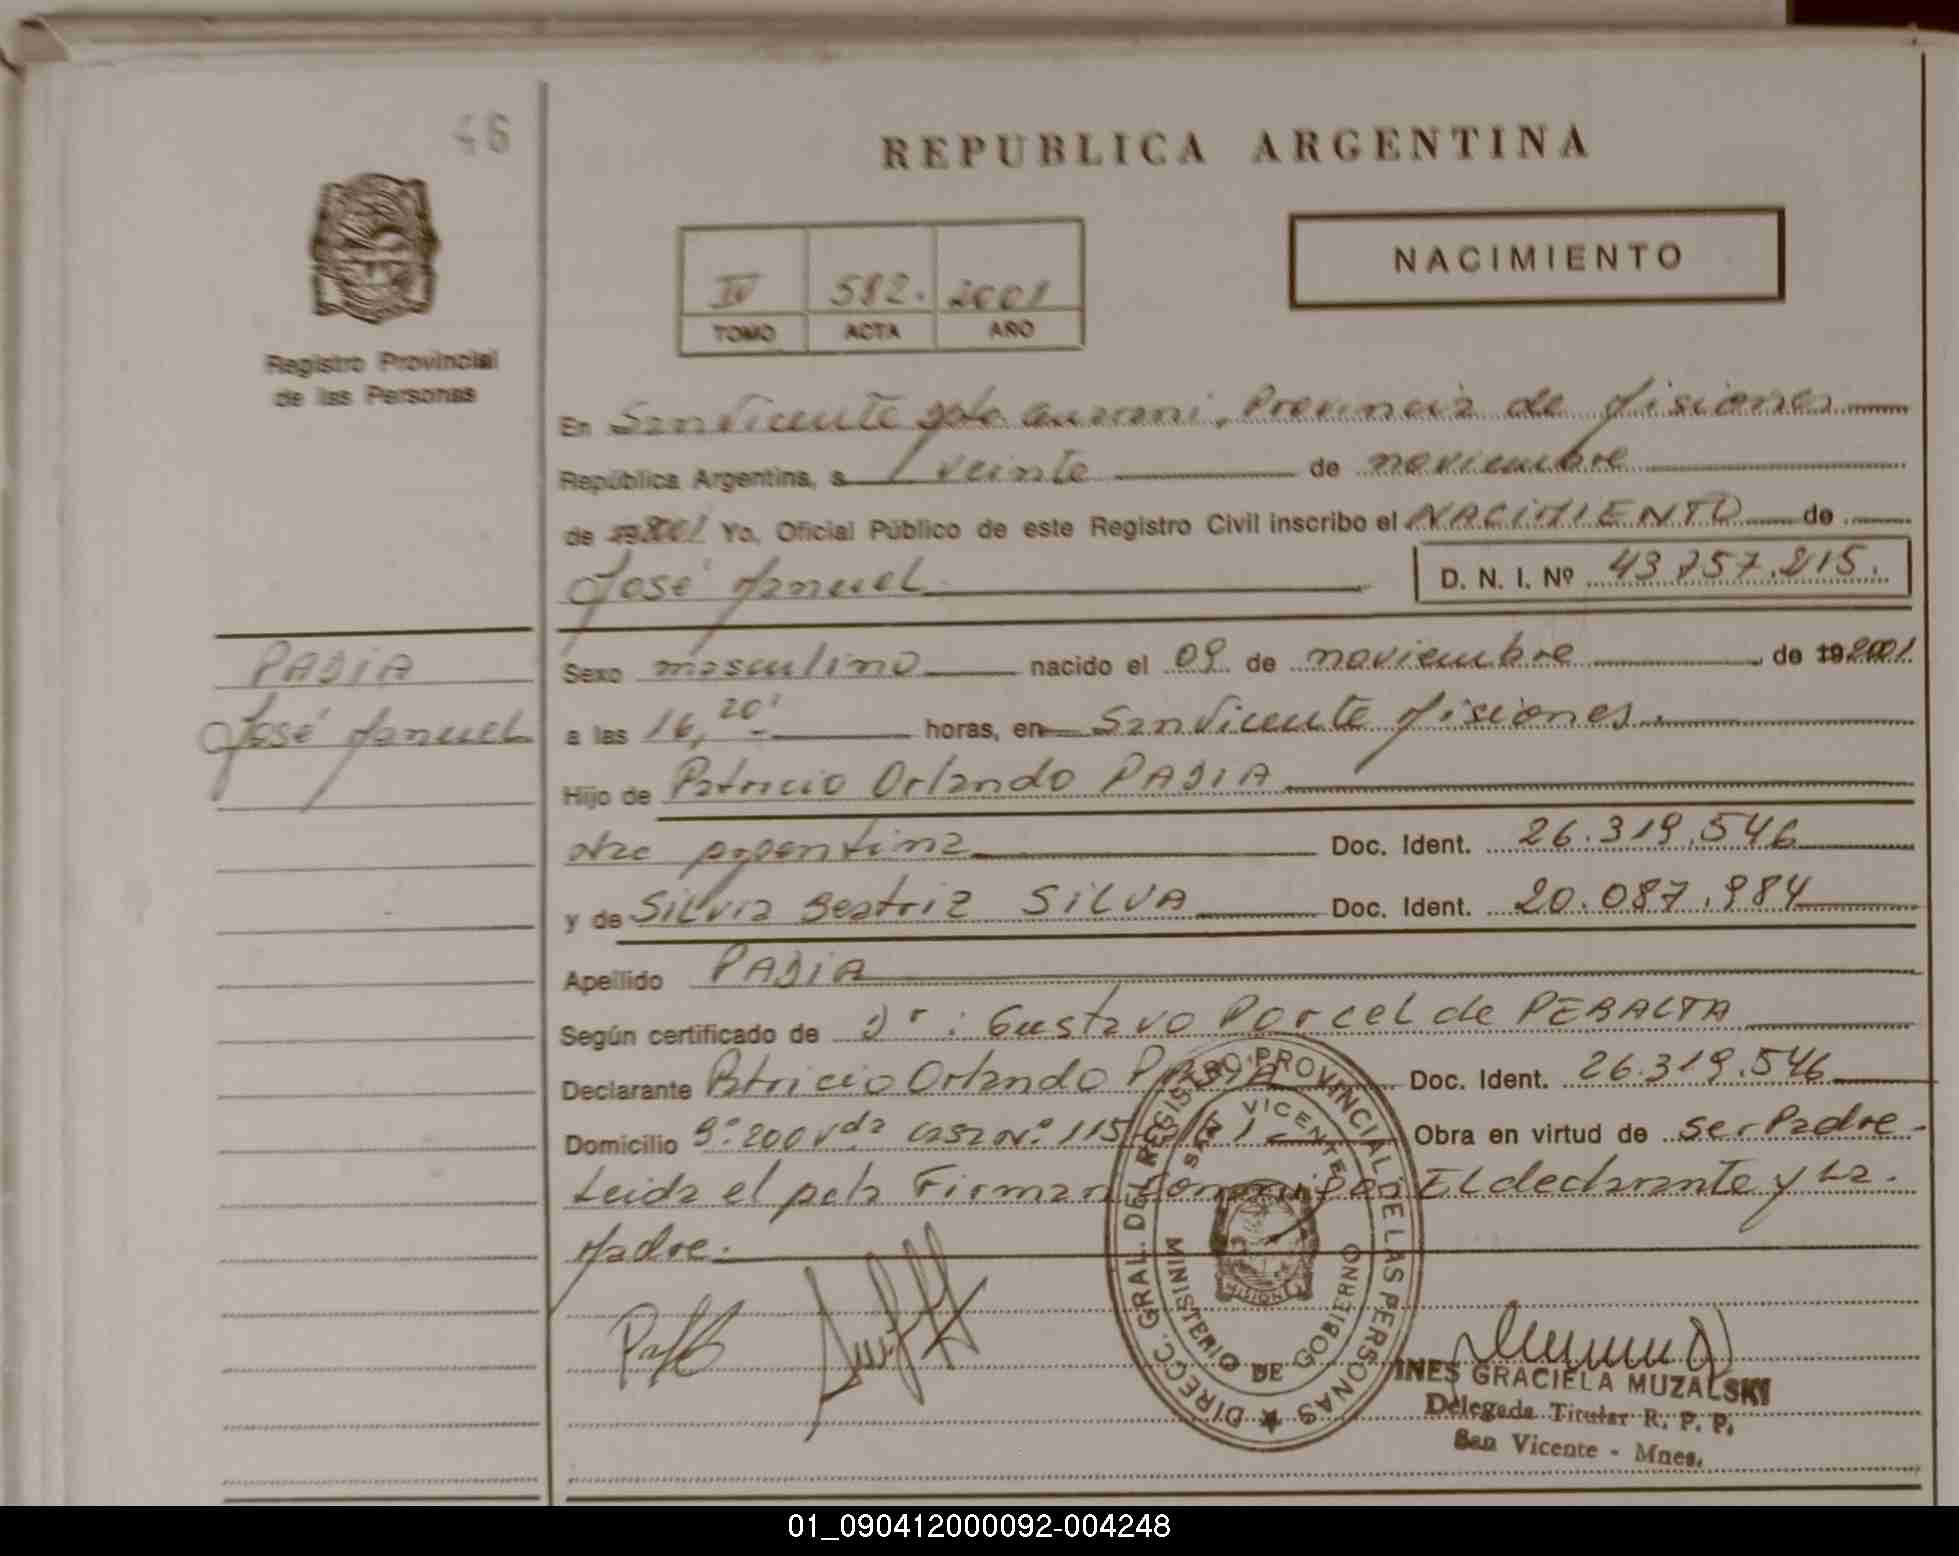 46
REPUBLICA ARGENTINA
NACIMIENTO
IV 582. 2001
TOMO ACTA AÑO
Registro Provincial
de las Personas
En San Vicente Dpto. Guaraní, Provincia de Misiones
República Argentina, a veinte de noviembre
de 2001 Yo, Oficial Público de este Registro Civil inscribo el NACIMIENTO de
José Manuel D. N. I. Nº 43.757.215.
PADIA
José Manuel
Sexo masculino nacido el 09 de noviembre de 19 2001
a las 16, 20' horas, en San Vicente Misiones.
Hijo de Patricio Orlando PADIA
Nac argentina Doc. Ident. 26.319.546
y de Silvia Beatriz SILVA Doc. Ident. 20.087.984
Apellido PADIA
Según certificado de Dr: Gustavo Porcel de PERALTA
Declarante Patricio Orlando PADIA Doc. Ident. 26.319.546
Domicilio Bº 200 Vda casa Nº 115 Obra en virtud de ser Padre-
Leida el acta Firman El declarante y La.
Madre.
DIRECC. GRAL. DEL REGISTRO PROVINCIAL DE LAS PERSONAS
SAN VICENTE
MISIONES
MINISTERIO DE GOBIERNO
INES GRACIELA MUZALSKI
Delegada Titular R. P. P.
San Vicente - Mnes.
01_090412000092-004248